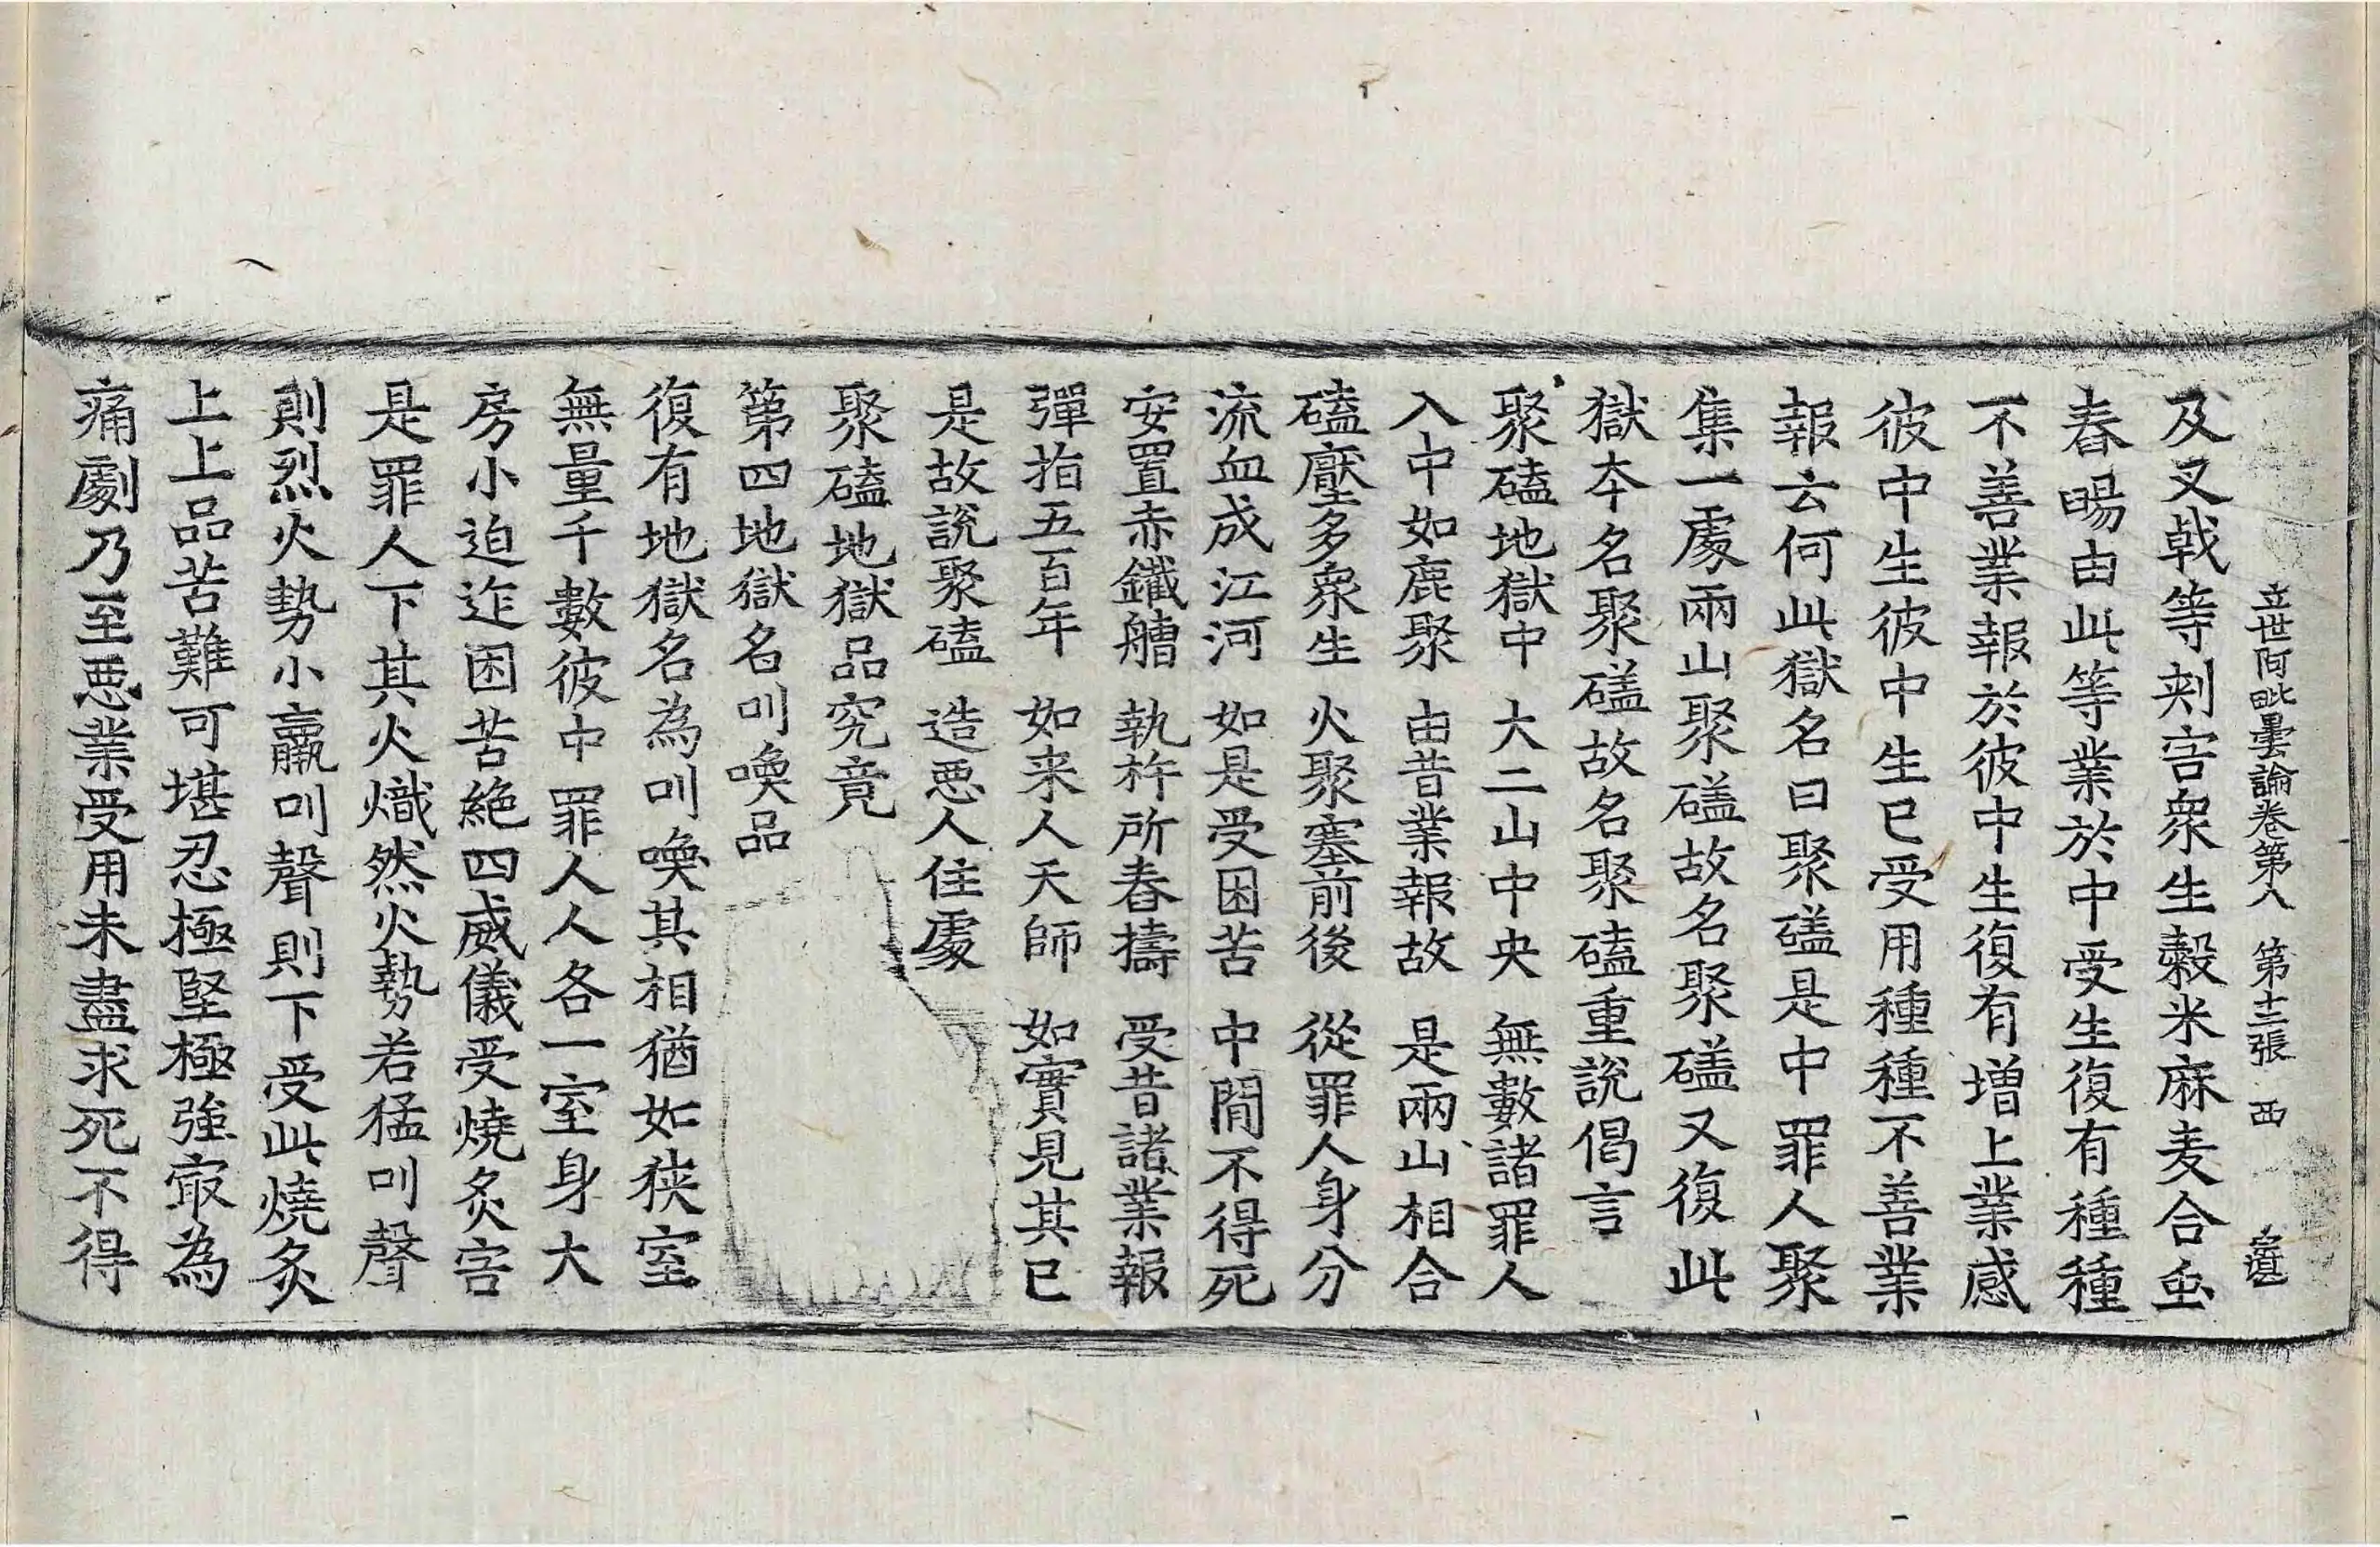 立世阿毗曇論卷第八 第十二張 西
及叉戟等刾害衆生榖米麻麦合虫
舂暘由此等業於中受生復有種種
不善業報於彼中生復有増上業感
彼中生彼中生已受用種種不善業
報云何此獄名曰聚磕是中罪人聚
集一處兩山聚磕故名聚磕又復此
獄夲名聚磕故名聚磕重說偈言
聚磕地獄中 大二山中央 無數諸罪人
入中如鹿聚 由昔業報故 是兩山相合
磕壓多衆生 火聚塞前後 從罪人身分
流血成江河 如是受困苦 中閒不得死
安置赤鐵艚 執杵所舂擣 受昔諸業報
彈指五百年 如来人天師 如實見其已
是故說聚磕 造惡人住處
聚磕地獄品究竟
第四地獄名叫喚品
復有地獄名為叫喚其相猶如狹室
無量千數彼中罪人人各一室身大
房小迫迮困苦絶四威儀受燒炙害
是罪人下其火熾然火勢若猛叫聲
則烈火勢小羸叫聲則下受此燒炙
上上品苦難可堪忍極堅極強㝡為
痛劇乃至惡業受用未盡求死不得